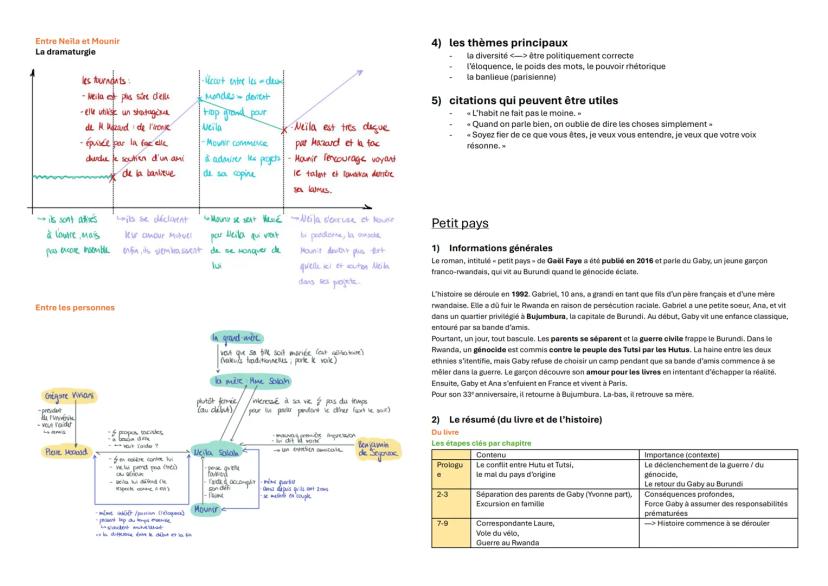 Entre Neïla et Mounir
La dramaturgie
les tournants :
- Neïla est plus sûre d'elle
- elle utilise un stratagème
de M. Mazard : de l'ironie
- épuisée par la fac elle
cherche le soutien d'un ami
de la banlieue
- l'écart entre les « deux
mondes » devient
trop grand pour
Neïla
- Mounir commence
à admirer les projets
de sa copine
- Neïla est très déçue
par Mazard et la fac
- Mounir l'encourage voyant
le talent et l'ambition derrière
ses larmes.
→ ils sont attirés
à l'autre, mais
pas encore ensemble
→ ils se déclarent
leur amour mutuel
enfin, ils s'embrassent
→ Mounir se sent blessé
par Neïla qui vient
de se moquer de
lui
→ Neïla s'excuse et Mounir
lui pardonne, la amitié
Mounir devient plus fort
qu'elle ici et soutien Neïla
dans ses projets.
Entre les personnes
la grand-mère
veut que sa fille soit mariée
(valeurs traditionnelles, porte le voile)
la mère : Mme Salah
plutôt fermée
(au début)
intéressé à sa vie, pas du temps
pour lui parler pendant le dîner (sort le soir)
Grégoire Viviani
- président
de l'université
- veut l'aider
→ amis
Pierre Mazard
- propos racistes
- a besoin d'elle
→ veut l'aider ?
Neïla Salah
- mauvaise première impression
- lui dit la vérité
→ un entretien amicale
Benjamin
de Segonzac
- en colère contre lui
- ne lui prend pas (très)
au sérieux
- Neïla lui défend (le
respecte comme il est)
- pense qu'elle
l'oublie
- l'aide à accomplir
son défi
- l'aime
- même quartier
- amis depuis qu'ils ont 2 ans
- se mettent en couple
Mounir
- même intérêt / passion (l'éloquence)
- passent bcp du temps ensemble
→ s'aident mutuellement
→ la différence entre le début et la fin
4) les thèmes principaux
- la diversité <—> être politiquement correcte
- l'éloquence, le poids des mots, le pouvoir rhétorique
- la banlieue (parisienne)
5) citations qui peuvent être utiles
- « L'habit ne fait pas le moine. »
- « Quand on parle bien, on oublie de dire les choses simplement »
- « Soyez fier de ce que vous êtes, je veux vous entendre, je veux que votre voix
résonne. »
Petit pays
1) Informations générales
Le roman, intitulé « petit pays » de Gaël Faye a été publié en 2016 et parle du Gaby, un jeune garçon
franco-rwandais, qui vit au Burundi quand le génocide éclate.
L'histoire se déroule en 1992. Gabriel, 10 ans, a grandi en tant que fils d'un père français et d'une mère
rwandaise. Elle a dû fuir le Rwanda en raison de persécution raciale. Gabriel a une petite soeur, Ana, et vit
dans un quartier privilégié à Bujumbura, la capitale de Burundi. Au début, Gaby vit une enfance classique,
entouré par sa bande d'amis.
Pourtant, un jour, tout bascule. Les parents se séparent et la guerre civile frappe le Burundi. Dans le
Rwanda, un génocide est commis contre le peuple des Tutsi par les Hutus. La haine entre les deux
ethnies s'identifie, mais Gaby refuse de choisir un camp pendant que sa bande d'amis commence à se
mêler dans la guerre. Le garçon découvre son amour pour les livres en intentant d'échapper la réalité.
Ensuite, Gaby et Ana s'enfuient en France et vivent à Paris.
Pour son 33e anniversaire, il retourne à Bujumbura. La-bas, il retrouve sa mère.
2) Le résumé (du livre et de l'histoire)
Du livre
Les étapes clés par chapitre
Contenu Importance (contexte)
Prologu
e
Le conflit entre Hutu et Tutsi,
le mal du pays d'origine
Le déclenchement de la guerre / du
génocide,
Le retour du Gaby au Burundi
2-3 Séparation des parents de Gaby (Yvonne part),
Excursion en famille
Conséquences profondes,
Force Gaby à assumer des responsabilités
prématurées
7-9 Correspondante Laure,
Vole du vélo,
Guerre au Rwanda
—> Histoire commence à se dérouler